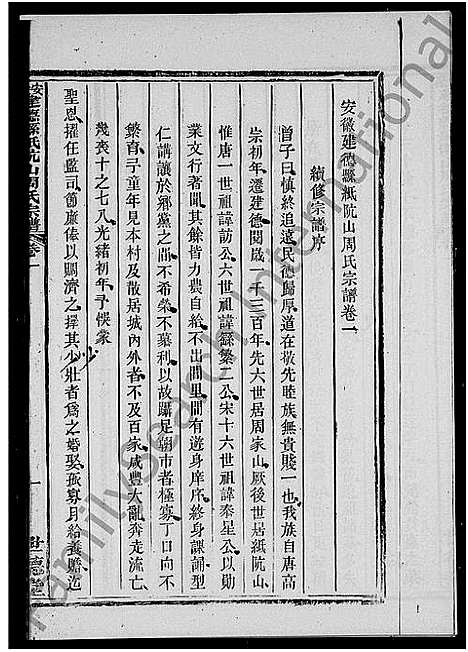 安徽建德縣紙阬山周氏宗譜卷一
續修宗譜序
曾子曰慎終追遠民德歸厚道在敬先睦族無貴賤一也我族自唐高
宗初年遷建德閱歲一千三百年先六世居周家山厥後世居紙阬山
惟唐一世祖諱訪公六世祖諱繇繁二公宋十六世祖諱奉星公以勛
業文行著聞其餘皆力農自給不出閭里間有遊身庠序終身課誦型
仁講讓於鄉黨之間不希榮不慕利以故躡足朝市者極寡丁口向不
繁育予童年見本村及散居城內外者不及百家咸豐大亂奔走流亡
幾喪十之七八光緒初年予悞蒙
聖恩擢任監司節廉俸以賙濟之擇其少壯者為之婚娶孤寡月給養贍迄
安徽建德縣紙阬山周氏宗譜 卷一
一
FamilySearch International